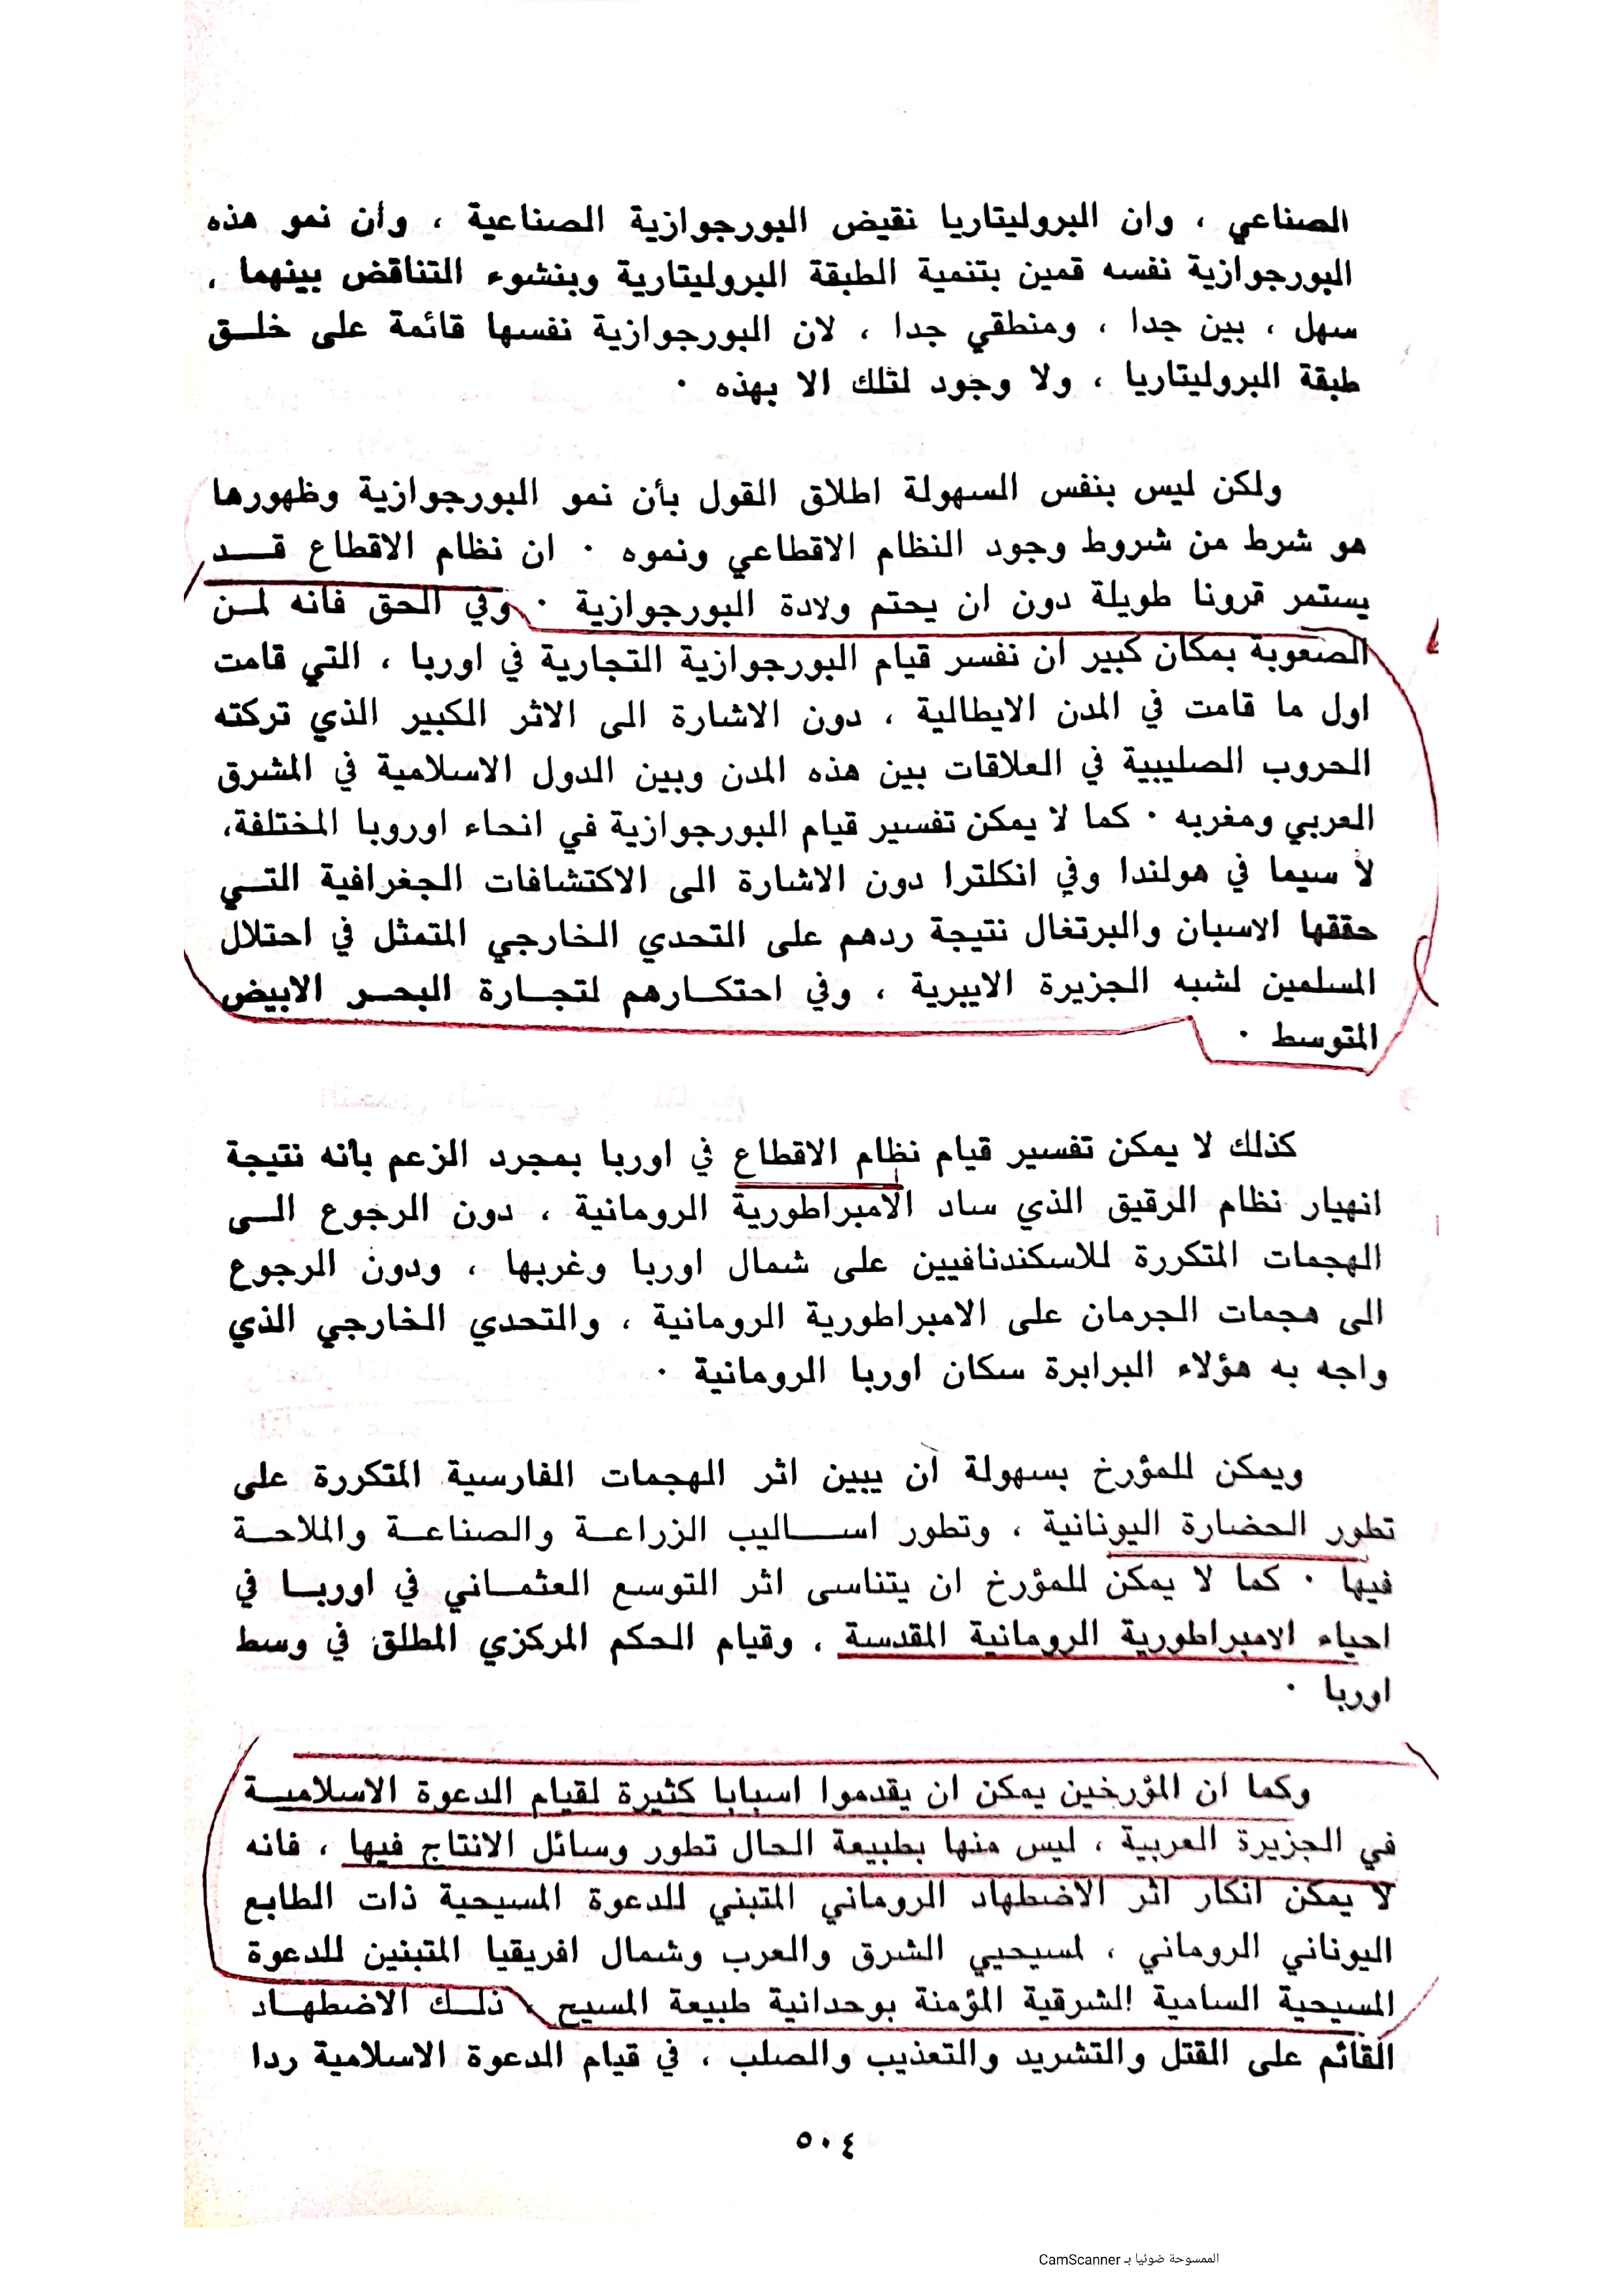 الصناعي ، وان البروليتاريا نقيض البورجوازية الصناعية ، وأن نمو هذه
البورجوازية نفسه قمين بتنمية الطبقة البروليتارية وبنشوء التناقض بينهما ،
سهل ، بين جدا ، ومنطقي جدا ، لان البورجوازية نفسها قائمة على خلــق
طبقة البروليتاريا ، ولا وجود لتلك الا بهذه ٠
ولكن ليس بنفس السهولة اطلاق القول بأن نمو البورجوازية وظهورها
هو شرط من شروط وجود النظام الاقطاعي ونموه ٠ ان نظام الاقطاع قــد
يستمر قرونا طويلة دون ان يحتم ولادة البورجوازية ٠ وفي الحق فانه لمـن
الصعوبة بمكان كبير ان نفسر قيام البورجوازية التجارية في اوربا ، التي قامت
اول ما قامت في المدن الايطالية ، دون الاشارة الى الاثر الكبير الذي تركته
الحروب الصليبية في العلاقات بين هذه المدن وبين الدول الاسلامية في المشرق
العربي ومغربه ٠ كما لا يمكن تفسير قيام البورجوازية في انحاء اوروبا المختلفة،
لا سيما في هولندا وفي انكلترا دون الاشارة الى الاكتشافات الجغرافية التــي
حققها الاسبان والبرتغال نتيجة ردهم على التحدي الخارجي المتمثل في احتلال
المسلمين لشبه الجزيرة الايبرية ، وفي احتكــارهم لتجــارة البحــر الابيض
المتوسط ٠
كذلك لا يمكن تفسير قيام نظام الاقطاع في اوربا بمجرد الزعم بأنه نتيجة
انهيار نظام الرقيق الذي ساد الامبراطورية الرومانية ، دون الرجوع الــى
الهجمات المتكررة للاسكندنافيين على شمال اوربا وغربها ، ودون الرجوع
الى هجمات الجرمان على الامبراطورية الرومانية ، والتحدي الخارجي الذي
واجه به هؤلاء البرابرة سكان اوربا الرومانية ٠
ويمكن للمؤرخ بسهولة ان يبين اثر الهجمات الفارسية المتكررة على
تطور الحضارة اليونانية ، وتطور اســـاليب الزراعــة والصناعــة والملاحــة
فيها ٠ كما لا يمكن للمؤرخ ان يتناسى اثر التوسع العثمــاني في اوربــا في
احياء الامبراطورية الرومانية المقدسة ، وقيام الحكم المركزي المطلق في وسط
اوربا ٠
وكما ان المؤرخين يمكن ان يقدموا اسبابا كثيرة لقيام الدعوة الاسلاميــة
في الجزيرة العربية ، ليس منها بطبيعة الحال تطور وسائل الانتاج فيها ، فانه
لا يمكن انكار اثر الاضطهاد الروماني المتبني للدعوة المسيحية ذات الطابع
اليوناني الروماني ، لمسيحيي الشرق والعرب وشمال افريقيا المتبنين للدعوة
المسيحية السامية الشرقية المؤمنة بوحدانية طبيعة المسيح ، ذلــك الاضطهــاد
القائم على القتل والتشريد والتعذيب والصلب ، في قيام الدعوة الاسلامية ردا
٥٠٤
الممسوحة ضوئيا بـ CamScanner